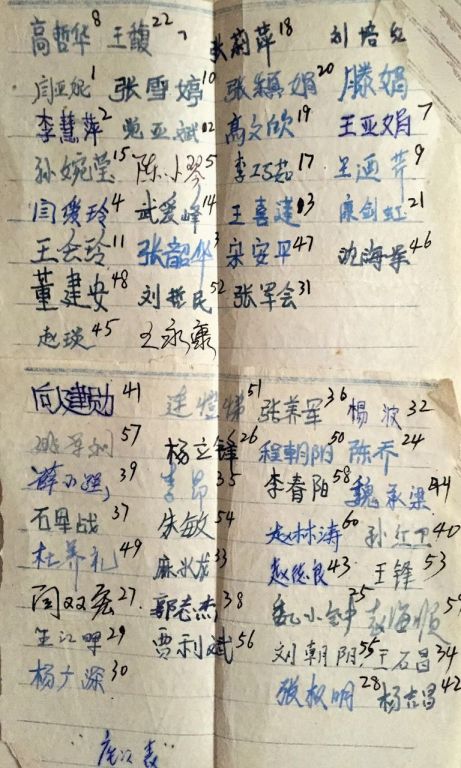 高哲华8 王馥22 张莉萍18 刘培红
闫亚妮1 张雪婷10 张颖娟20 滕娟
李慧萍2 党亚斌12 高文欣19 王亚娟7
孙婉莹15 陈小琴5 李巧茹17 9
闫瑷玲4 武爱峰14 王喜建13 康剑虹21
王会玲11 张韶华3 宋安平47 沈海军46
董建安48 刘哲民52 张军会31
赵琰45 王永康
向建勋41 51 张养军36 杨波32
57 杨立锋26 程朝阳50 陈乔24
薛小强39 李昂35 李春阳58 魏承梁44
石军战37 朱敏54 赵林涛60 孙红卫40
杜养礼49 麻水龙33 赵俊良43 王锋53
闫双宏27 郭老杰38 25 赵海顺59
29 贾利斌56 刘朝阳55 王石昌34
杨广深30 张权明28 杨吉昌42